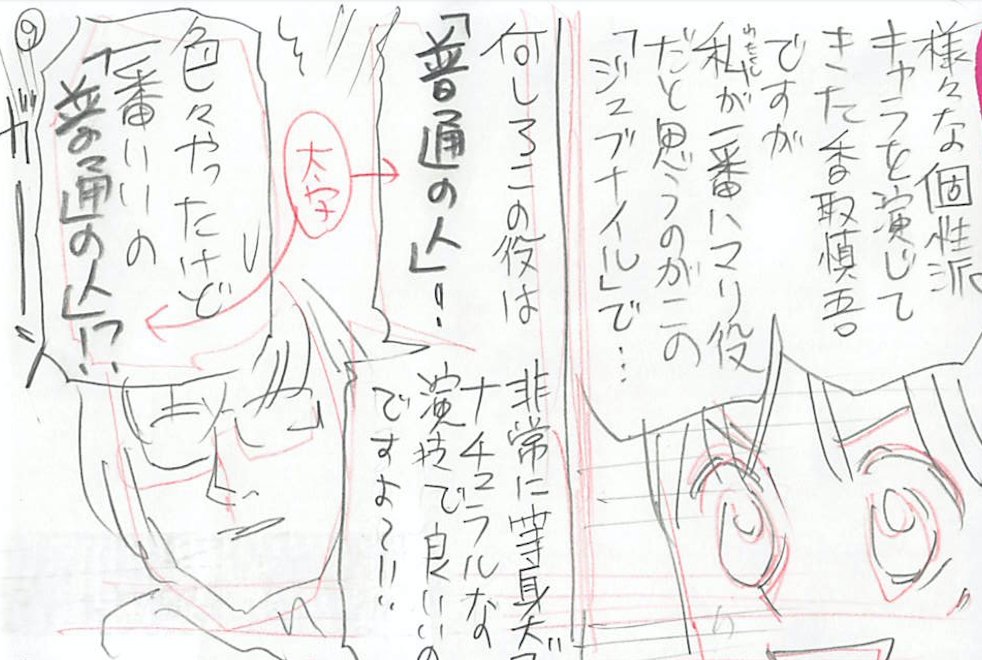 様々な個性派
キャラを演じて
きた香取慎吾。
ですが
私が一番ハマり役
わたくし
だと思うのがこの
「ジュブナイル」で…
何しろこの役は
「普通の人」!
非常に等身大で
ナチュラルな
演技で良いの
ですよて!!
太字
色々やったけど
一番いいの
「普通の人」!?
ガーーン